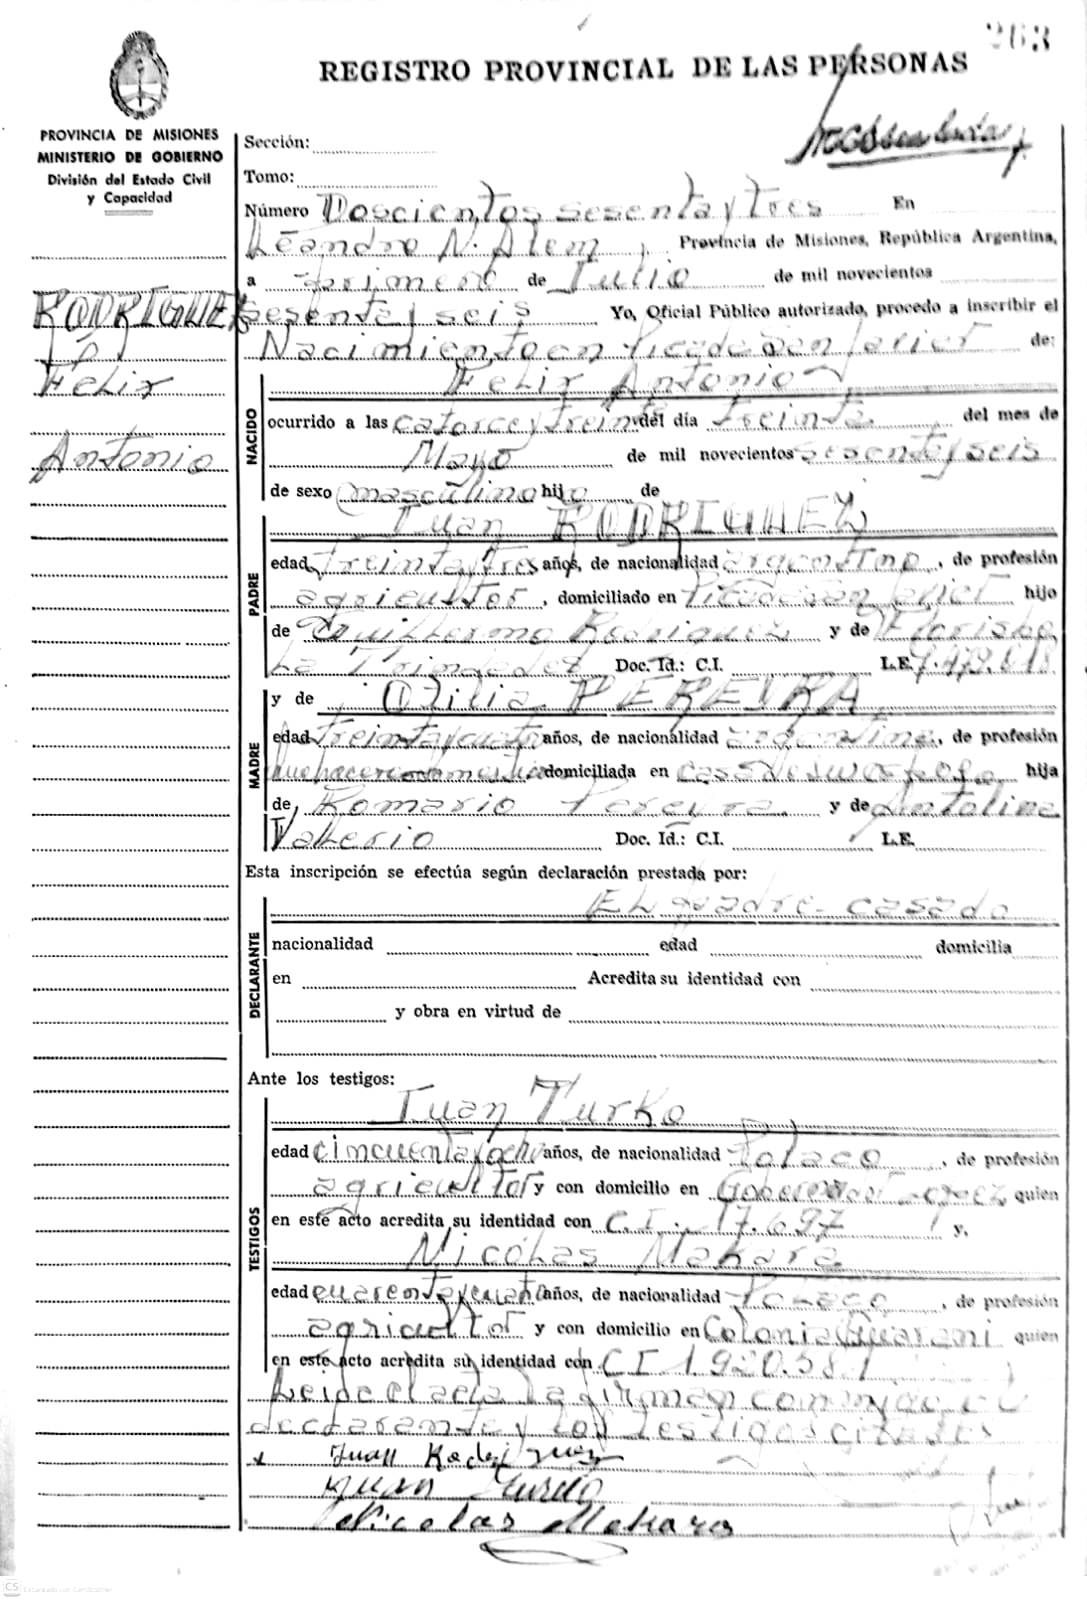 263
REGISTRO PROVINCIAL DE LAS PERSONAS
PROVINCIA DE MISIONES
MINISTERIO DE GOBIERNO
División del Estado Civil
y Capacidad
Sección:
Tomo:
Número Doscientos sesenta y tres En
Leandro N. Alem, Provincia de Misiones, República Argentina,
a primero de Julio de mil novecientos
sesenta y seis Yo, Oficial Público autorizado, procedo a inscribir el
Nacimiento en Picada San Javier de:
RODRIGUEZ
Felix
Antonio
NACIDO
Felix Antonio
ocurrido a las catorce y treinta del día treinta del mes de
Mayo de mil novecientos sesenta y seis
de sexo masculino hijo de
PADRE
Juan RODRIGUEZ
edad treinta y tres años, de nacionalidad argentino, de profesión
agricultor, domiciliado en Picada San Javier hijo
de Guillermo Rodriguez y de
La Doc. Id.: C.I. L.E. 7.473.618
MADRE
y de Otilia PEREYRA
edad treinta y cuatro años, de nacionalidad argentina, de profesión
domiciliada en casa de su esposo hija
de Romario Pereyra y de Antolina
Valerio Doc. Id.: C.I. L.E.
Esta inscripción se efectúa según declaración prestada por:
DECLARANTE
El padre casado
nacionalidad edad domicilia
en Acredita su identidad con
y obra en virtud de
Ante los testigos:
TESTIGOS
Juan Turko
edad cincuenta y ocho años, de nacionalidad Polaco, de profesión
agricultor y con domicilio en Gobernador Lopez quien
en este acto acredita su identidad con C.I. 17.697 y,
Nicolas Makara
edad cuarenta y cuatro años, de nacionalidad Polaco, de profesión
agricultor y con domicilio en Colonia Guarani quien
en este acto acredita su identidad con C I 1.920.581
Leida el acta la firman conmigo el
declarante y los testigos citados
x Juan Rodriguez
Juan Turko
Nicolas Makara
CS Escaneado con CamScanner